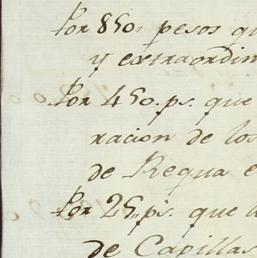 Por 850,, pesos qu
y extraordin
Por 450. ps. que
racion de los
de Requa e
Por 25,, ps. que
de Capillas